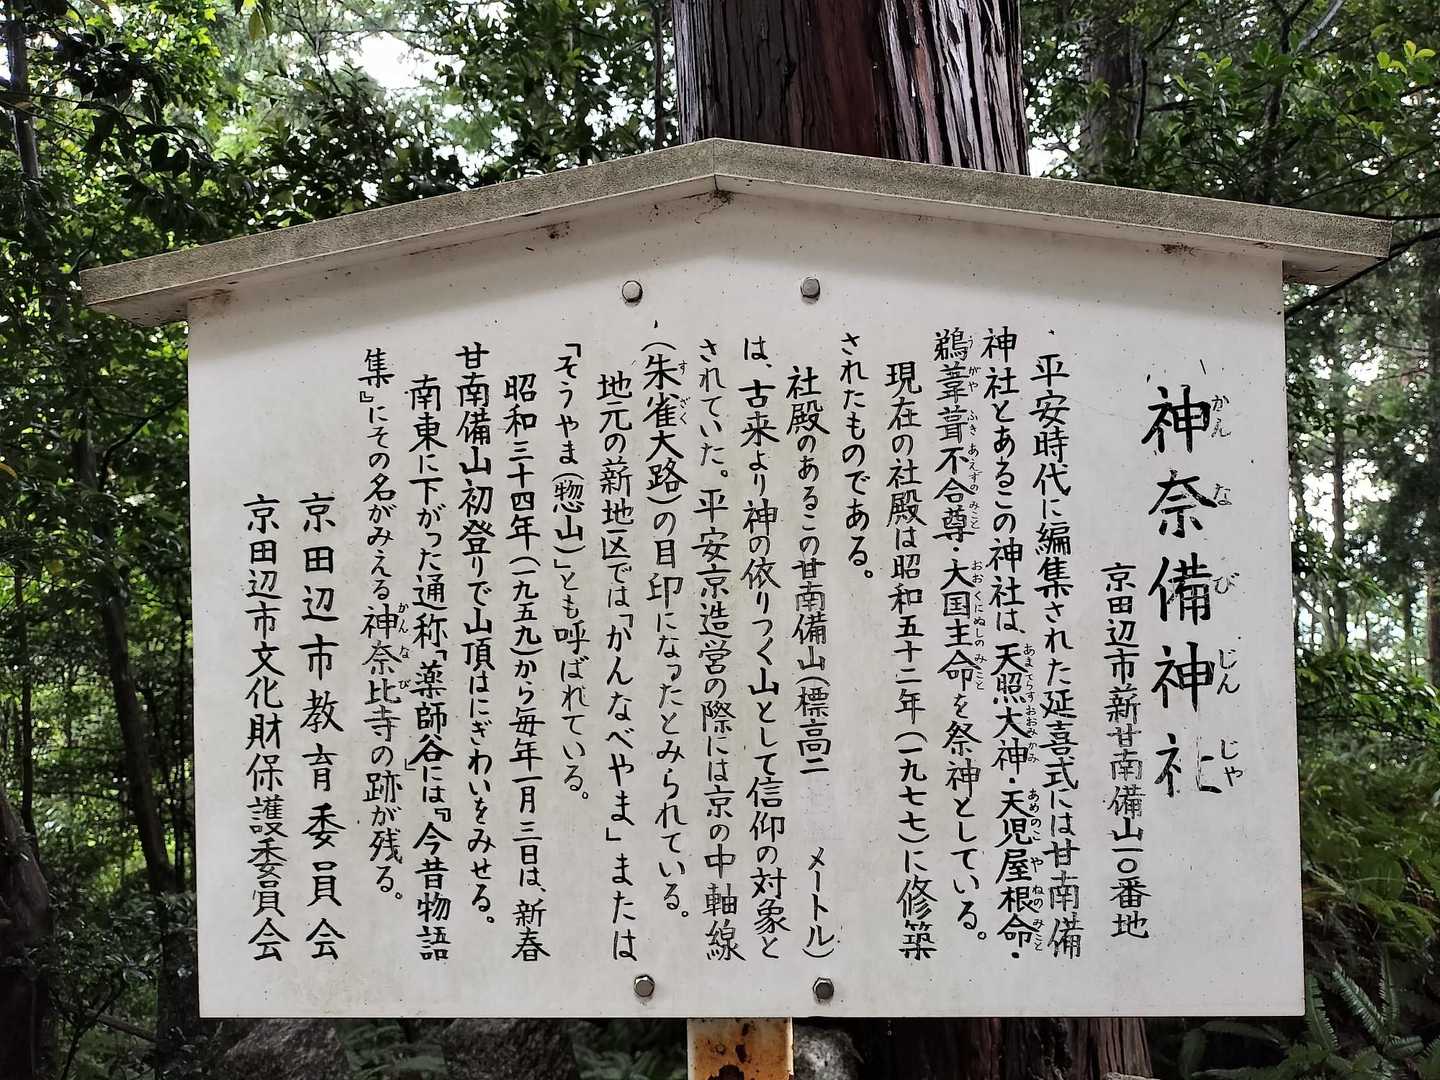 神奈備神社
かんなびじんじゃ
京田辺市薪甘南備山一〇番地
平安時代に編集された延喜式には甘南備
神社とあるこの神社は、天照大神・天児屋根命・
あまてらすおおみかみ あめのこやねのみこと
鵜葺葺不合尊・大国主命を祭神としている。
うがやふきあえずのみこと おおくにぬしのみこと
現在の社殿は昭和五十二年(一九七七)に修築
されたものである。
社殿のあるこの甘南備山(標高二 メートル)
は、古来より神の依りつく山として信仰の対象と
されていた。平安京造営の際には京の中軸線
(朱雀大路)の目印になったとみられている。
すざく
地元の薪地区では「かんなべやま」または
「そうやま(惣山)」とも呼ばれている。
昭和三十四年(一九五九)から毎年一月三日は、新春
甘南備山初登りで山頂はにぎわいをみせる。
南東に下がった通称「薬師谷」には『今昔物語
集』にその名がみえる神奈比寺の跡が残る。
かんなび
京田辺市教育委員会
京田辺市文化財保護委員会